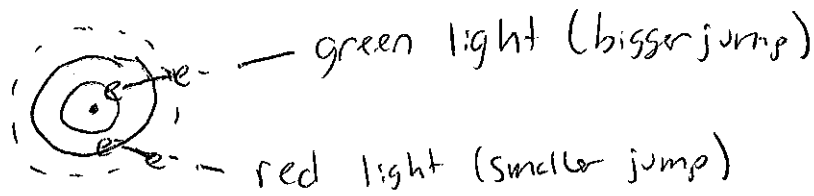 e e- — green light (bigger jump)
e- e- - - red light (smaller jump)